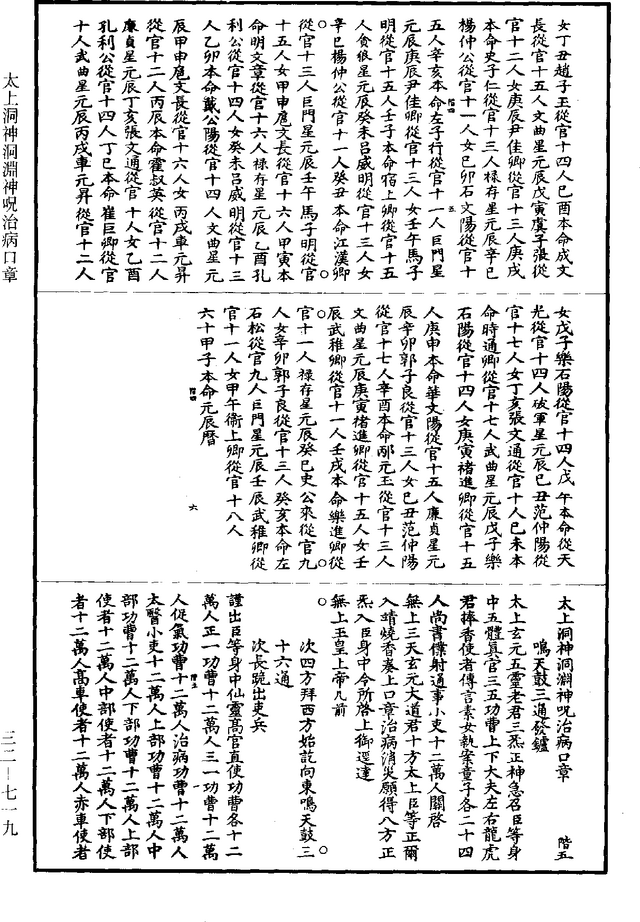 女丁丑趙子玉從官十四人己酉本命成文
長從官十五人文曲星元辰戊寅虞子張從
官十二人女庚辰尹佳卿從官十三人庚戌
本命史子仁從官十三人祿存星元辰辛巳
楊仲公從官十一人女己卯石文陽從官十
五人辛亥本命左子行從官十一人巨門星
元辰庚辰尹佳卿從官十三人女壬午馬子
明從官十三人壬子本命宿上卿從官十五
人貪狼星元辰癸未呂威明從官十三人女
辛巳楊仲公從官十一人癸丑本命江漢卿
從官十三人巨門星元辰壬午馬子明從官
十五人女甲申扈文長從官十六人甲寅本
命明文章從官十六人祿存星元辰乙酉孔
利公從官十四人女癸未呂威明從官十三
人乙卯本命戴公陽從官十四人文曲星元
辰甲申扈文長從官十六人女丙戌車元昇
從官十二人丙辰本命霍叔英從官十二人
廉貞星元辰丁亥張文通從官十人女乙酉
孔利公從官十四人丁巳本命崔巨卿從官
十人武曲星元辰丙戌車元昇從官十二人
女戊子樂石陽從官十四人戊午本命從天
光從官十四人破軍星元辰己丑范仲陽從
官十七人女丁亥張文通從官十人己未本
命時通卿從官十七人武曲星元辰戊子樂
石陽從官十四人女庚寅褚進卿從官十五
人庚申本命華文陽從官十五人廉貞星元
辰辛卯郭子良從官十三人女己丑范仲陽
從官十七人辛酉本命邴元玉從官十三人
文曲星元辰庚寅褚進卿從官十五人女壬
辰武稚卿從官十一人壬戌本命樂進卿從
官十一人祿存星元辰癸巳史公來從官九
人女辛卯郭子良從官十三人癸亥本命左
石松從官九人巨門星元辰壬辰武稚卿從
官十一人女甲午衞上卿從官十八人
六十甲子本命元辰曆
太上洞神洞淵神呪治病口章 階五
鳴天鼓三通發鑪
太上玄元五靈老君三炁正神急召臣等身
中五體眞官三五功曹上下大夫左右龍虎
君捧香使者傳言素女執案童子各二十四
人尚書僕射通事小吏十二萬人關啓
無上三天玄元大道君十方太上臣等正爾
入靖燒香奏上口章治病消災願得八方正
炁入臣身中令所啓上御逕達
無上玉皇上帝几前
次四方拜西方始訖向東鳴天鼓三
十六通
次長跪出吏兵
謹出臣等身中仙靈高官直使功曹各十二
萬人正一功曹十二萬人三一功曹十二萬
人促氣功曹十二萬人治病功曹十二萬人
太醫小吏十二萬人上部功曹十二萬人中
部功曹十二萬人下部功曹十二萬人上部
使者十二萬人中部使者十二萬人下部使
者十二萬人高車使者十二萬人赤車使者
太上洞神洞淵神呪治病口章
三二—七一九